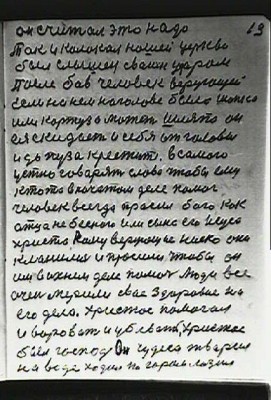 он считал это надо 19
Так и колокал нашей церкви
был слышен сваим ударом
После баб человек верующей
если на нем на голове было шапка
или картуз может шляпа он
ея скидает и себя от головы
и до пуза крестит. в самого
говарят слово чтобы ему
кто то в начатом деле помог
человек всегда просил бога как
отца небесного или сына его Исуса
христа кому верющие ниско они
кланились и просили чтобы он
им в ихнем деле помог Люди все
очен мерили свае здаровье на
его дела. Христос помогал
и вороват и убиват, Христос
был господ Он чудеса тварил
на воде ходил по горам лазил